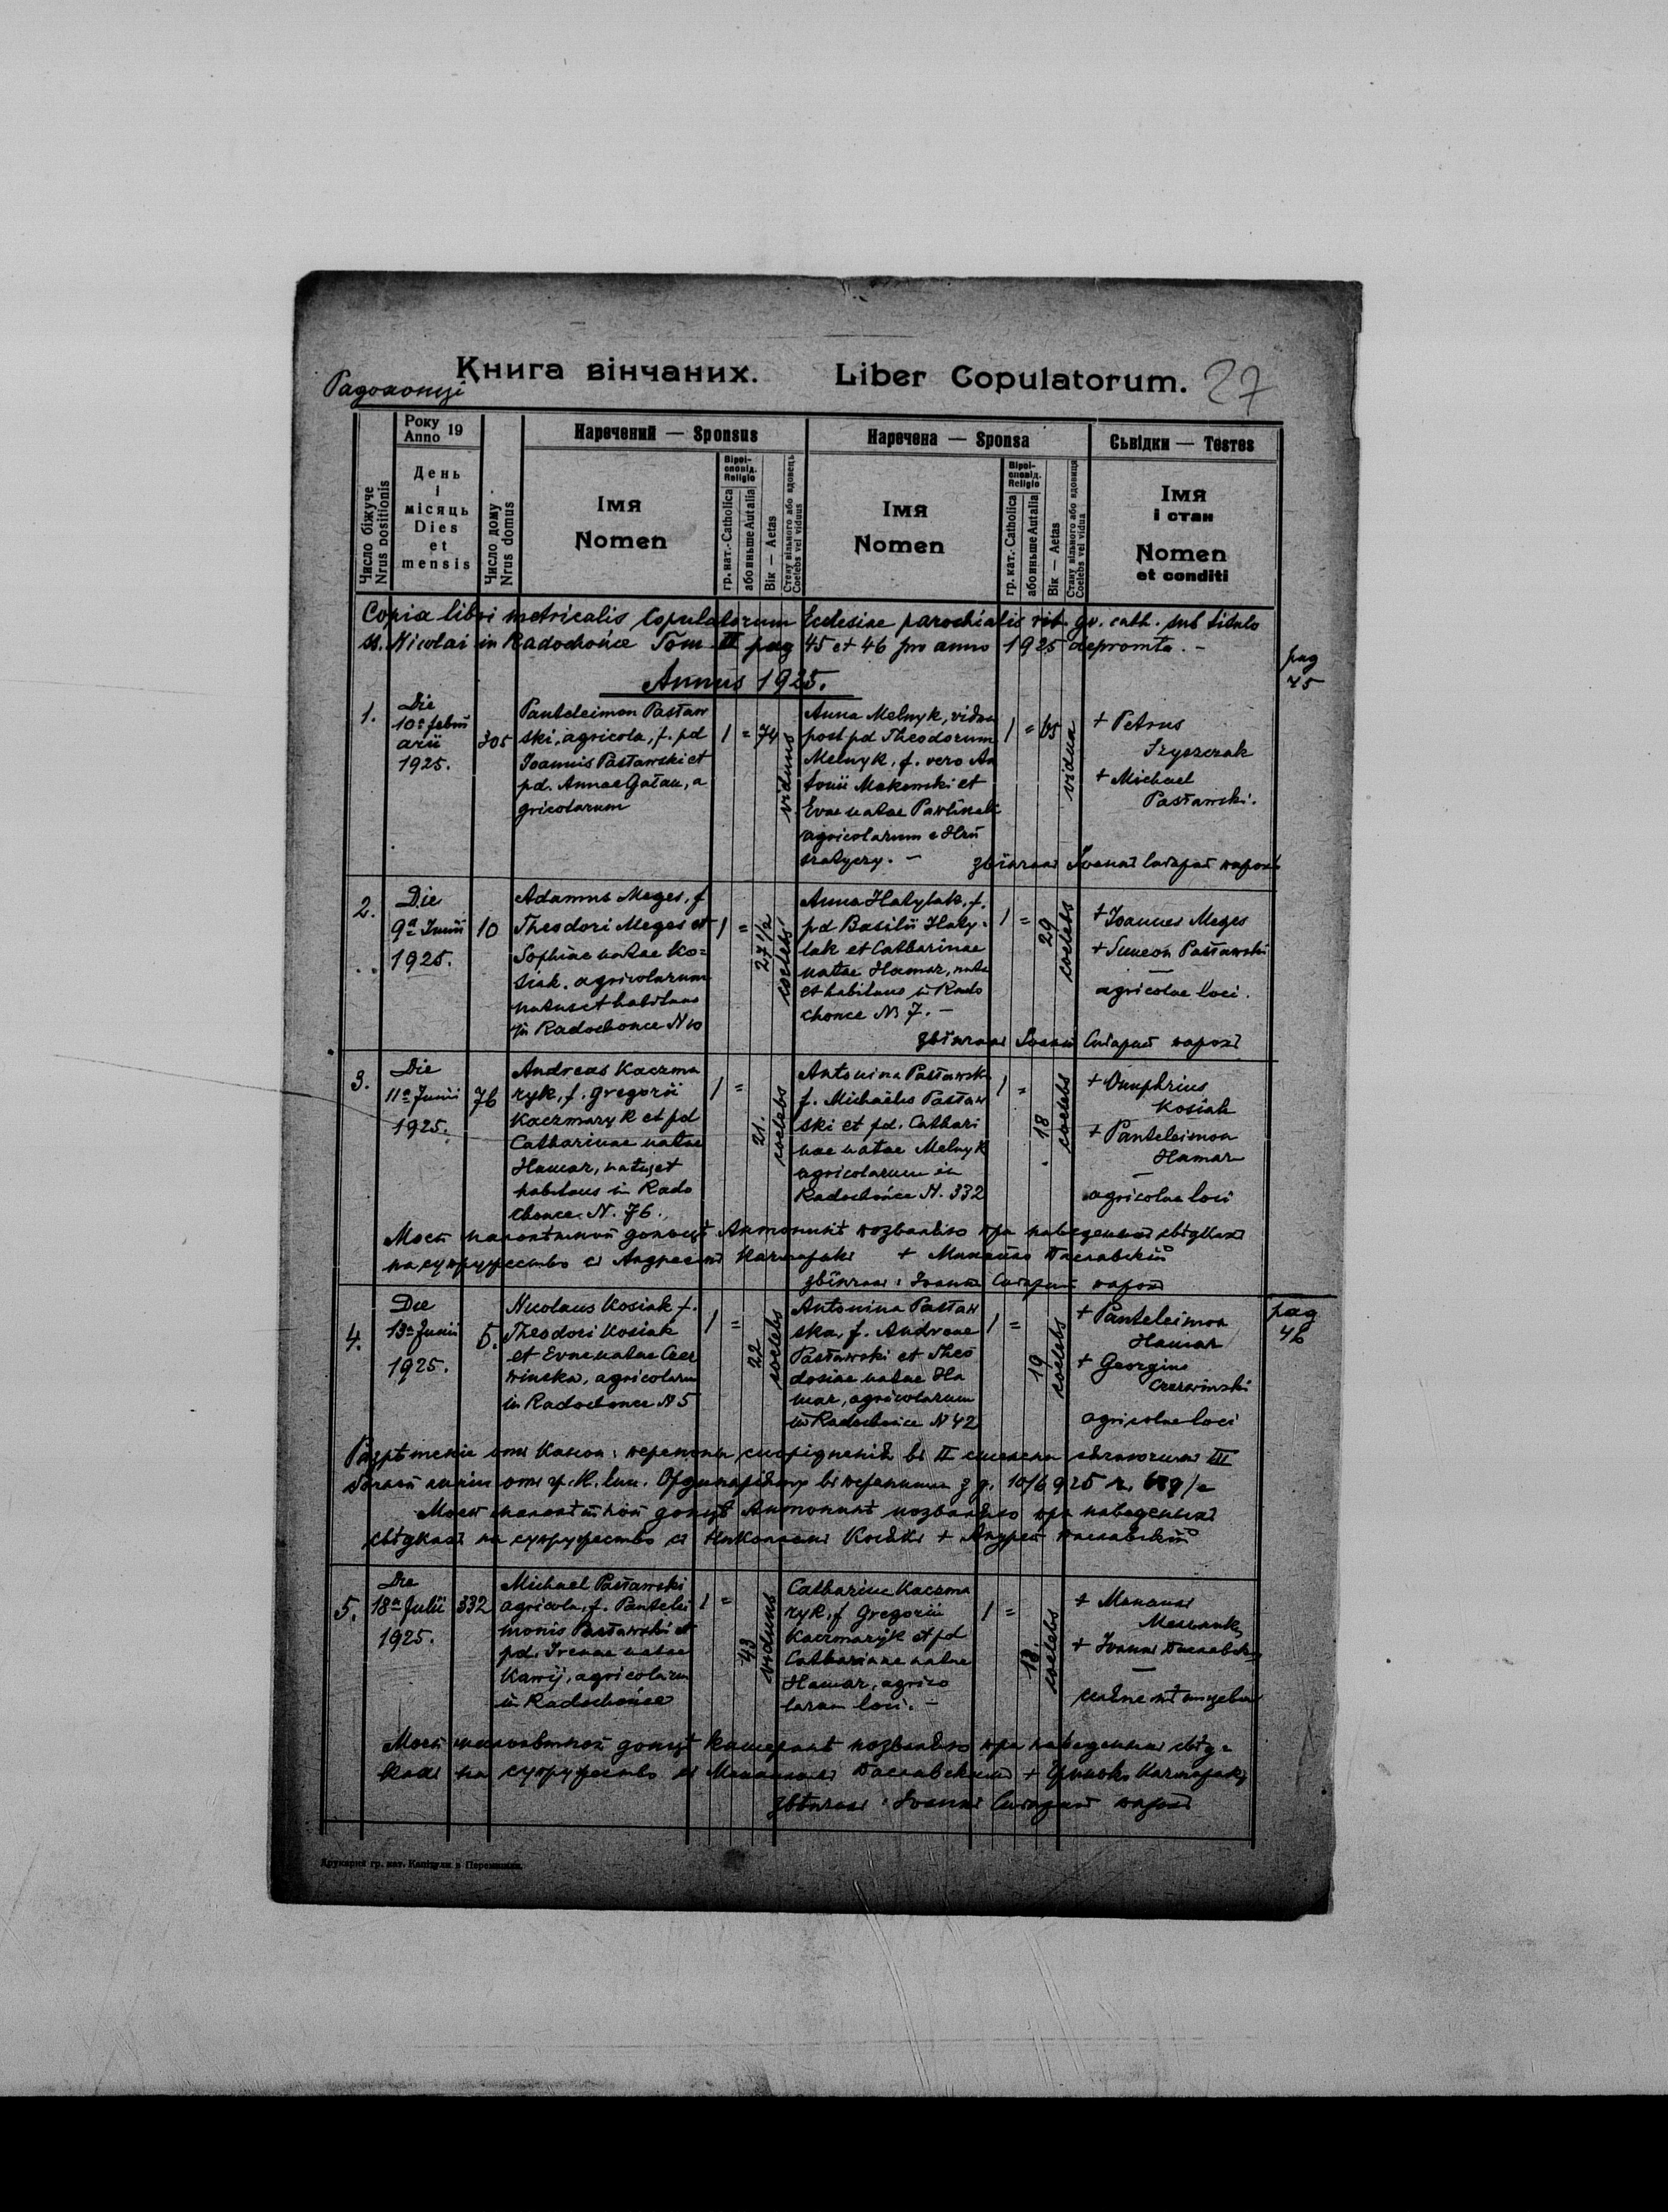 Книга вінчаних. Liber Copulatorum. 27
Радохонці
Число біжуче
Nrus positionis
Року
Anno 19
День
і
місяць
Dies
et
mensis
Число дому
Nrus domus
Наречений — Sponsus
Імя
Nomen
Віроі-
сповід.
Religio
гр. кат.-Catholica
або иньше Autalia
Вік — Aetas
Стану вільного або вдовець
Coelebs vel viduus
Наречена — Sponsa
Імя
Nomen
Віроі-
сповід.
Religio
гр. кат.-Catholica
або иньше Autalia
Вік — Aetas
Стану вільного або вдовиця
Coelebs vel vidua
Сьвідки — Testes
Імя
і стан
Nomen
et conditi
Copia libri metricalis Copulatorum Ecclesiae parochialis rit. gr. cath. sub titulo
St. Nicolai in Radochońce Tom III pag 45 et 46 pro anno 1925 depromta. -
pag
45
Annus 1925.
1.
Die
10a febru
arii
1925.
305
Panteleimon Pasław
ski, agricola, f. pd
Joannis Pasławski et
pd. Annae Gałan, a
gricolarum
1 = 74 viduus
Anna Melnyk, vidua
post pd Theodorum
Melnyk, f. vero An
tonii Makowski et
Evae natae
agricolarum e Hru
szatyczy. -
1 = 65 vidua
+ Petrus
+ Michael
Pasławski.
Іоаннъ парохъ
2.
Die
9a Junii
1925.
10
Adamus Meges, f
Theodori Meges et
Sophiae natae Ko=
siak. agricolarum
natus et habitans
in Radochonce N 10
1 = 27 1/2 coelebs
Anna Hałylak, f.
pd Basilii Hały-
lak et Catharinae
natae Hamar, nata
et habitans in Rado
chonce N 7. -
1 = 29 coelebs
+ Joannes Meges
+ Simeon Pasławski
agricolae loci.
Іоаннъ парохъ
3.
Die
11a Junii
1925.
76
Andreas Kaczma
ryk, f. Gregorii
Kaczmaryk et pd
Catharinae natae
Hamar, natus et
habitans in Rado
chonce N. 76.
1 = 21. coelebs
Antonina Pasławsk
f. Michaëlis Pasław
ski et pd. Cathari
nae natae Melnyk
agricolarum in
Radochońce N. 332
1 = 18 coelebs
+ Onuphrius
Kosiak
+ Panteleimon
Hamar
agricolae loci
Моєй малолѣтной Антонинѣ позваляю при наведенныхъ свѣдкахъ
на супружество съ Андреємъ + Михайло Паславскій
Іоаннъ парохъ
4.
Die
13a Junii
1925.
5.
Nicolaus Kosiak f.
Theodori Kosiak
et Evae natae Czer
winska, agricolarum
in Radochonce N 5
1 = 22 coelebs
Antonina Pasław
ska, f. Andreae
Pasławski et Theo
dosiae natae Ha
mar, agricolarum
in Radochońce N 42
1 = 19 coelebs
+ Panteleimon
Hamar
+ Georgius
Czerwinski
agricolae loci
pag
46
Моєй малолѣтной Антонинѣ позваляю при наведенныхъ
свѣдкахъ на супружество съ Николаємъ + Андрей Паславскій
5.
Die
18a Julii
1925.
332
Michael Pasławski
agricola, f. Pantelei
monis Pasławski et
pd. Irenae natae
agricolarum
in Radochońce
1 = 43 viduus
Catharina Kaczma
ryk, f Gregorii
Kaczmaryk et pd
Catharinae natae
Hamar, agrico
larum loci. -
1 = 18. coelebs
+ Михаилъ
+ Іоаннъ
Моєй позваляю при наведенныхъ свѣд=
кахъ на супружество съ Михаиломъ Паславскимъ +
Іоаннъ парохъ
Друкарня гр. кат. Капітули в Перемишли.